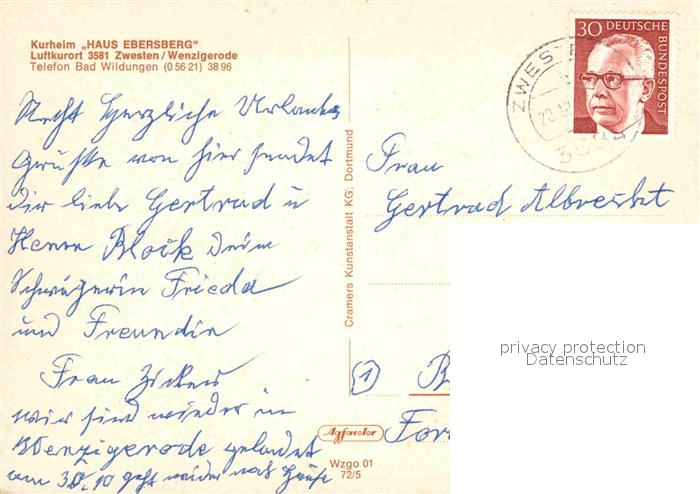 Kurheim „HAUS EBERSBERG"
Luftkurort 3581 Zwesten/Wenzigerode
Telefon Bad Wildungen (0 56 21) 38 96
Recht herzliche Urlaubs
Grüße von hier sendet
dir liebe Gertrud u
Herrn Block deine
Schwägerin Frieda
und Freundin
Frau
wir sind wieder in
Wenzigerode gelandet
am 30.10 geht wieder nach Hause
Cramers Kunstanstalt KG, Dortmund
30 DEUTSCHE
BUNDESPOST
ZWESTEN
Frau
Gertrud Albrecht
1 B
For
Agfacolor
Wzgo 01
72/5
privacy protection
Datenschutz